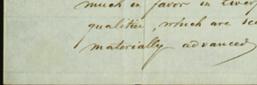 much in favor in Liver
qualities, which are
materially advanced